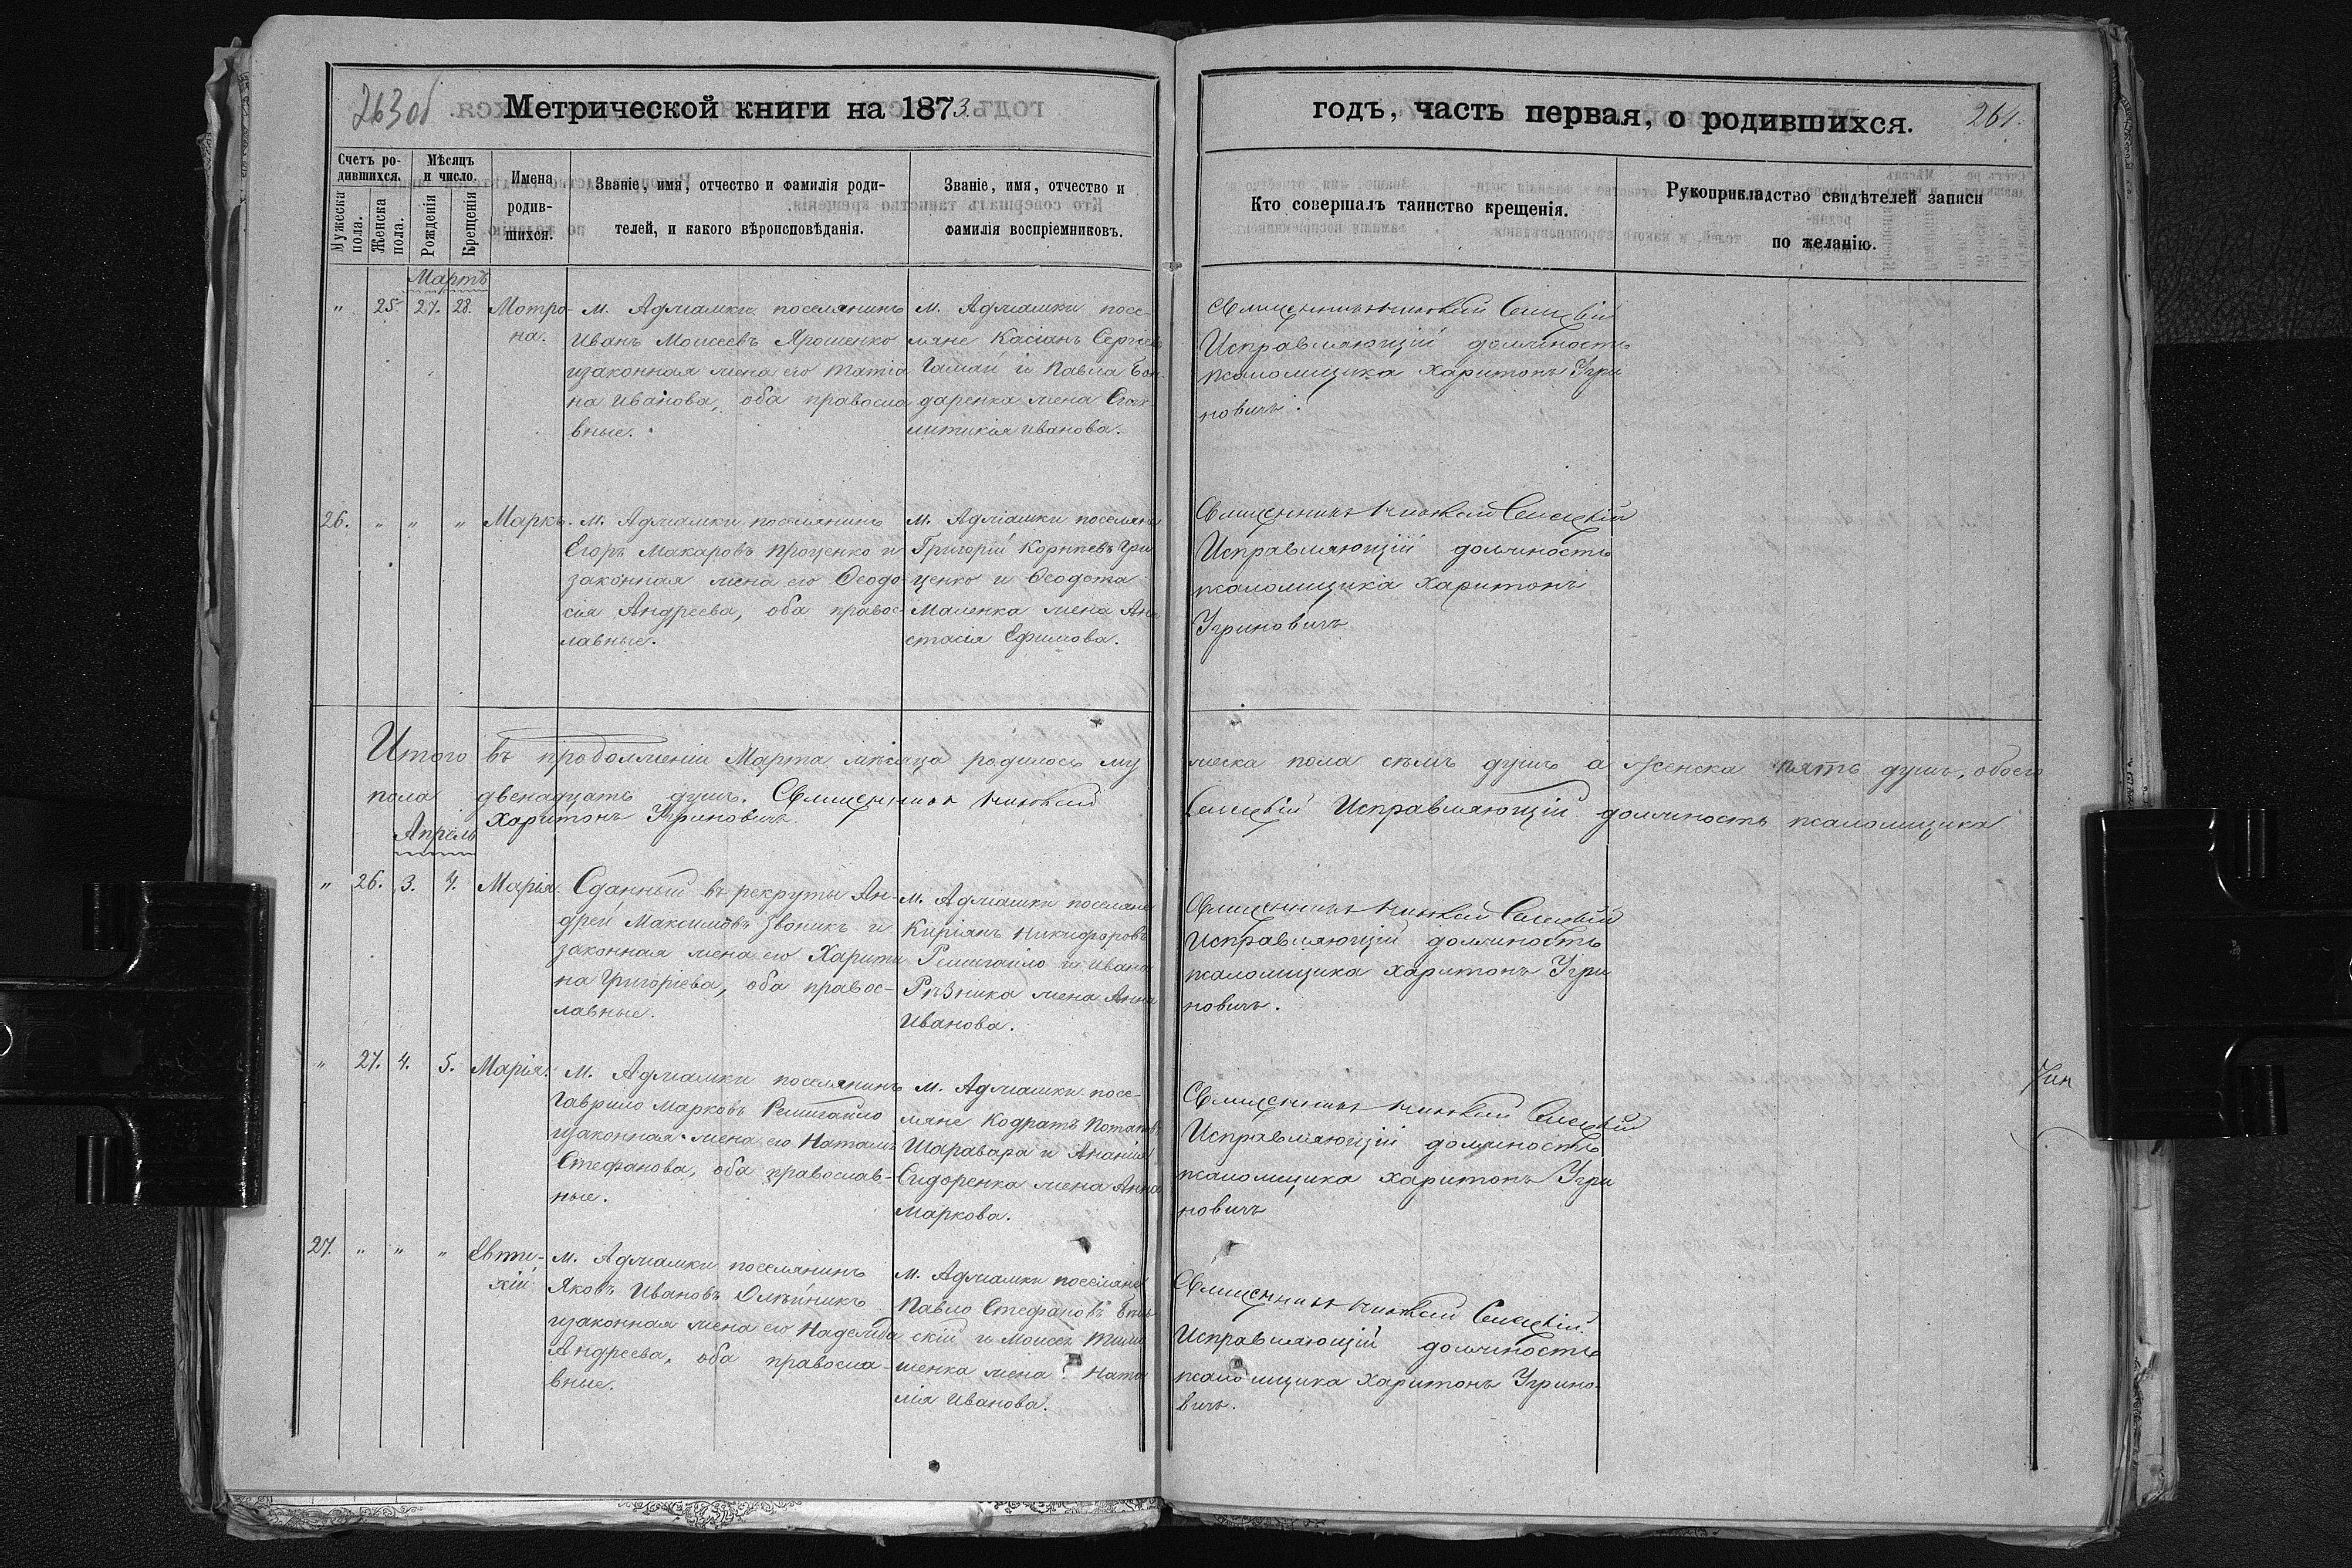 263 об
Метрической книги на 1873.
Счетъ ро-
дившихся.
Мужеска
пола.
Женска
пола.
Мѣсяцъ
и число.
Рожденія
Крещенія
Имена
родив-
шихся.
Званіе, имя, отчество и фамилія роди-
телей, и какого вѣроисповѣданія.
Званіе, имя, отчество и
фамилія воспріемниковъ.
годъ, часть первая, о родившихся.
264.
Кто совершалъ таинство крещенія.
Рукоприкладство свидѣтелей записи
по желанію.
Мартъ
" 25. 27. 28. Мотро-
на.
м. Аджамки поселянинъ
Иванъ Моисеевъ Ярошенко
изаконная жена его Татіа
на Иванова, оба правосла
вные.
м. Аджамки посе-
ляне Касіанъ Сергѣевъ
Гамай и Павла Бон-
даренка жена
Иванова.
Священникъ
Исправляющій должность
псаломщика Харитонъ Угри
новичъ.
26. " " " Маркъ.
м. Аджамки поселянинъ
Егоръ Макаровъ Проценко и
законная жена его Ѳеодо-
сія Андреева, оба правос-
лавные.
м. Аджамки поселяне
Григорій Корнѣевъ Гри
ценко и Ѳеодота
Маленка жена Ана
стасія Ефимова.
Священникъ
Исправляющій должность
псаломщика Харитонъ
Угриновичъ
Итого въ продолженіи Марта мѣсяца родилось му
жеска пола семь душъ а женска пять душъ, обоего
пола двенадцать душъ. Священникъ
Исправляющій должность псаломщика
Харитонъ Угриновичъ.
Апрѣль
" 26. 3. 4. Марія.
Сданный въ рекруты Ан-
дрей Максимовъ Звоникъ и
законная жена его Харити
на Григоріева, оба правос-
лавные.
м. Аджамки поселяне
Киріянъ Никифоровъ
и Ивана
Рѣзника жена Анна
Иванова.
Священникъ
Исправляющій должность
псаломщика Харитонъ Угри
новичъ.
" 27. 4. 5. Марія.
м. Аджамки поселянинъ
Гаврило Марковъ
изаконная жена его Наталія
Стефанова, оба православ-
ные.
м. Аджамки посе-
ляне Кодратъ Потаповъ
Шаравара и Ананія
Сидоренка жена Анна
Маркова.
Священникъ
Исправляющій должность
псаломщика Харитонъ Угри
новичъ
27. " " " Евти-
хій
м. Аджамки поселянинъ
Яковъ Ивановъ Олѣйникъ
изаконная жена его Надежда
Андреева, оба правосла-
вные.
м. Аджамки поселяне
Павло Стефановъ
скій и Моисея Тимо
шенка жена Ната
лія Иванова.
Священникъ
Исправляющій должность
псаломщика Харитонъ Угрино-
вичъ.